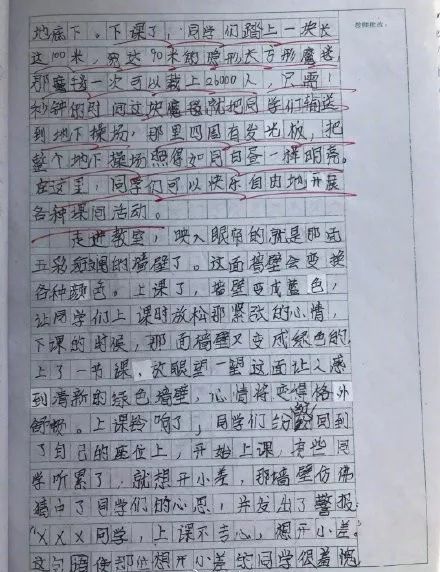 教师批改：
地底下。下课了，同学们踏上一块长
这100米，宽达90米的隐形长方形魔毯，
那魔毯一次可以载上26000人，只需1
秒钟的时间这块魔毯就把同学们输送
到地下操场，那里四周有发光板，把
整个地下操场照得如同白昼一样明亮。
在这里，同学们可以快乐自由地开展
各种课间活动。
走进教室，映入眼帘的就是那面
五彩斑斓的墙壁了。这面墙壁会变换
各种颜色。上课了，墙壁变成蓝色，
让同学们上课时放松那紧张的心情，
下课的时候，那面墙壁又变成绿色的，
上了一节课，放眼望一望这面让人感
到清新的绿色墙壁，心情将变得格外
舒畅。上课铃响了，同学们纷纷回到
了自己的座位上，开始上课，有些同
学听累了，就想开小差，那墙壁仿佛
猜中了同学们的心思，并发出了警报：
“XXX同学，上课不专心，想开小差。”
这句话使那位想开小差的同学很羞愧，